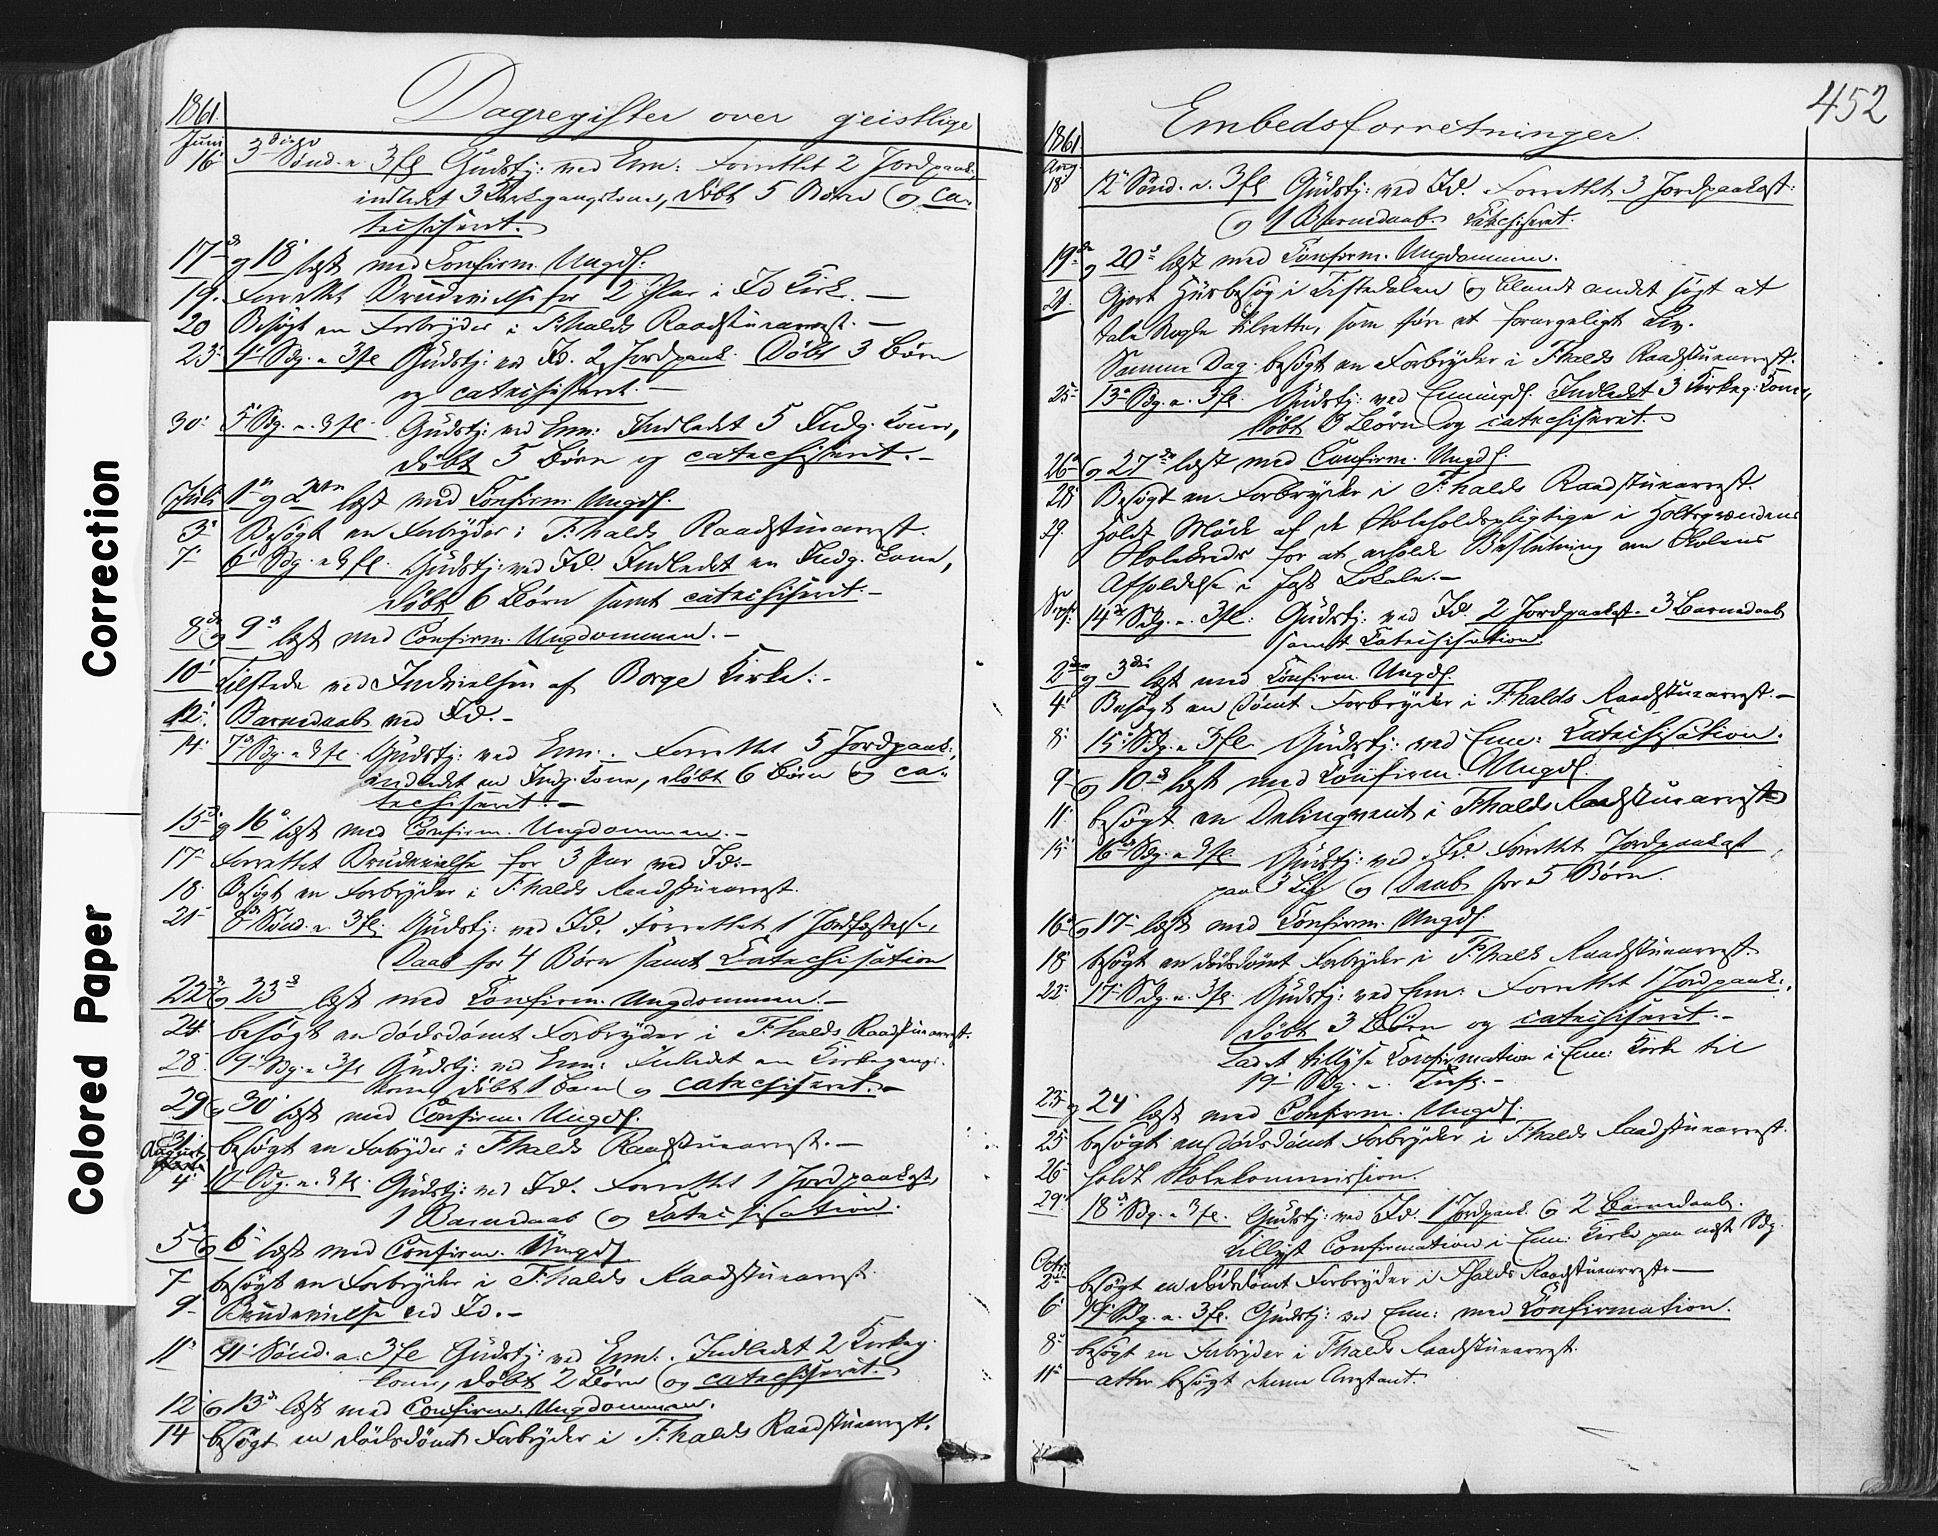 Dagregister over geistlige
1861.
Juni
16 3die Sønd. e. 3fl Gudstj: ved Enn: Forrettet 2 Jordpaak.
indledet 3 Kirkegangskoner, døbt 5 Børn og ca-
techiseret.
17de og 18 læst med Confirm. Ungd:
19. Forrettet Brudevielse for 2 Par i Id Kirke. —
20 Besøgt en Forbryder i F:halds Raadstuearrest. —
23: 4 Sdg. e 3fl Gudstj: ved Id. 2 Jordpaak. Døbt 3 Børn
og catechiseret. —
30: 5 Sdg. e. 3fl. Gudstj: ved Enn: Indledet 5 Indg. Koner,
døbt 5 Børn og catechiseret. —
Juli 1ste og 2den læst med Confirm Ungd:
3: Besøgt en Forbryder i F:halds Raadstuearrest.
7 6 Sdg. e 3fl. Gudstj: ved Id. Indledet en Indg. Kone,
døbt 6 Børn samt catechiseret. —
8de og 9de læst med Confirm. Ungdommen. —
10 Tilstede ved Indvielsen af Borge Kirke. —
12: Barnedaab ved Id. —
14: 7de Sdg. e 3fl. Gudstj: ved Enn: Forrettet 5 Jordpaak.,
indledet en Indg. Kone, døbt 6 Børn og ca-
techiseret. —
15de og 16de læst med Confirm. Ungdommen. —
17 Forrettet Brudevielse for 3 Par ved Id. —
18. Besøgt en Forbryder i F:halds Raadstuearrest.
21 8de Sønd. e. 3fl. Gudstj: ved Id. Forrettet 1 Jordfæstelse,
Daab for 4 Børn samt Catechisation
22de og 23de læst med Confirm. Ungdommen. —
24 besøgt en dødsdømt Forbryder i F:halds Raadstuearrest.
28 9 Sdg. e 3fl Gudstj: ved Enn: Indledet en Kirkegangs-
kone, døbt 1 Barn og catechiseret. —
29 og 30 læst med Confirm. Ungd:
31. besøgt en Forbryder i F:halds Raadstuearrest. —
August
4 10 Sdg. e. 3fl. Gudstj: ved Id. Forrettet 1 Jordpaakast,
1 Barnedaab og Catechisation.
5de og 6 læst med Confirm. Ungd:
7 besøgt en Forbryder i F:halds Raadstuearrest
9 Brudevielse ved Id. —
11 11 Sønd. e. 3fl Gudstj: ved Enn: Indledet 2 Kirkeg.
koner, døbt 2 Børn og catechiseret.
12 og 13de læst med Confirm. Ungdommen.
14 besøgt en dødsdømt Forbryder i F:halds Raadstuearrest.
452
Embedsforretninger.
1861
Aug.
18 12 Sønd. e. 3fl Gudstj: ved Id. Forrettet 3 Jordpaakast.
og 1 Barnedaab. Catechiseret.
19de og 20de læst med Confirm. Ungdommen.
21. Gjort Husbesøg i Tistedalen og blandt andet søgt at
tale Nogle tilrette, som føre et forargeligt Liv.
Samme Dag besøgt en Forbryder i F:halds Raadstuearrest.
25 13 Sdg. e. 3fl. Gudstj: ved Enningd: Indledet 3 Kirkeg: Koner,
døbt 3 Børn og catechiseret.
26de og 27de læst med Confirm. Ungd:
28 Besøgt en Forbryder i F:halds Raadstuearrest.
29. Holdt Møde af de Skoleholdspligtige i Holtegrændens
Skolekreds for at erholde Beslutning om Skolens
Afholdelse i fast Lokale. —
Septr
1. 14de Sdg. e. 3fl. Gudstj: ved Id. 2 Jordpaakast. 3 Barnedaab
samt Catechisation.
2den og 3die læst med Confirm. Ungd:
4 Besøgt en dømt Forbryder i F:halds Raadstuearrest. —
8 15 Sdg. e 3fl. Gudstj: ved Enn: Catechisation.
9 og 10de læst med Confirm. Ungd:
11. besøgt en Delinqvent i F:halds Raadstuearrest
15 16de Sdg. e 3fl. Gudstj: ved Id. Forrettet Jordpaakast
paa 3 Lig og Daab for 5 Børn.
16 og 17 læst med Confirm. Ungd:
18 besøgt en dødsdømt Forbryder i F:halds Raadstuearrest.
22 17 Sdg. e. 3fl. Gudstj: ved Enn: Forrettet 1 Jordpaak.,
døbt 3 Børn og catechiseret. —
Ladet tillyse Confirmation i Enn: Kirke til
19 Sdg. e. —
23 og 24 læst med Confirm. Ungd:
25 besøgt en dødsdømt Forbryder i F:halds Raadstuearrest.
26 holdt Skolekommission.
29 18de Sdg. e 3fl. Gudstj: ved Id. 1 Jordpaak. og 2 Barnedaab.
tillyst Confirmation i Enn: Kirke paa næste Sdg.
Octr
2den besøgt en dødsdømt Forbryder i F:halds Raadstuearrest. —
6 19 Sdg. e. 3fl. Gudstj: ved Enn: med Confirmation.
8 besøgt en Forbryder i F:halds Raadstuearrest.
11 — atter besøgt denne Arrestant.
Colored Paper Correction